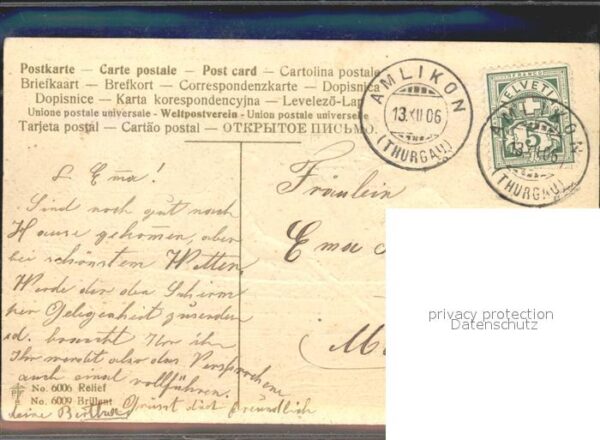 Postkarte — Carte postale — Post card — Cartolina postale
Briefkaart — Brefkort — Correspondenzkarte — Dopisnica
Dopisnice — Karta korespondencyjna — Levelező-Lap
Unione postale universale - Weltpostverein - Union postale universelle
Tarjeta postal — Cartão postal — ОТКРЫТОЕ ПИСЬМО.
AMLIKON
13.XII.06
(THURGAU)
FRANCO
HELVETIA
5
AMLIKON
13.XII.06
(THURGAU)
L. Ema!
Sind noch gut nach
Hause gekommen, aber
bei schönstem Wetter.
Werde dir den Schirm
per Gelegenheit zusenden
od. braucht Ihr ihn
Ihr werdet also das Versprochene
auch einst vollführen.
Grüsst dich freundlich
deine Bertha
Fräulein
Ema
No. 6006 Relief
No. 6009 Brillant
privacy protection
Datenschutz